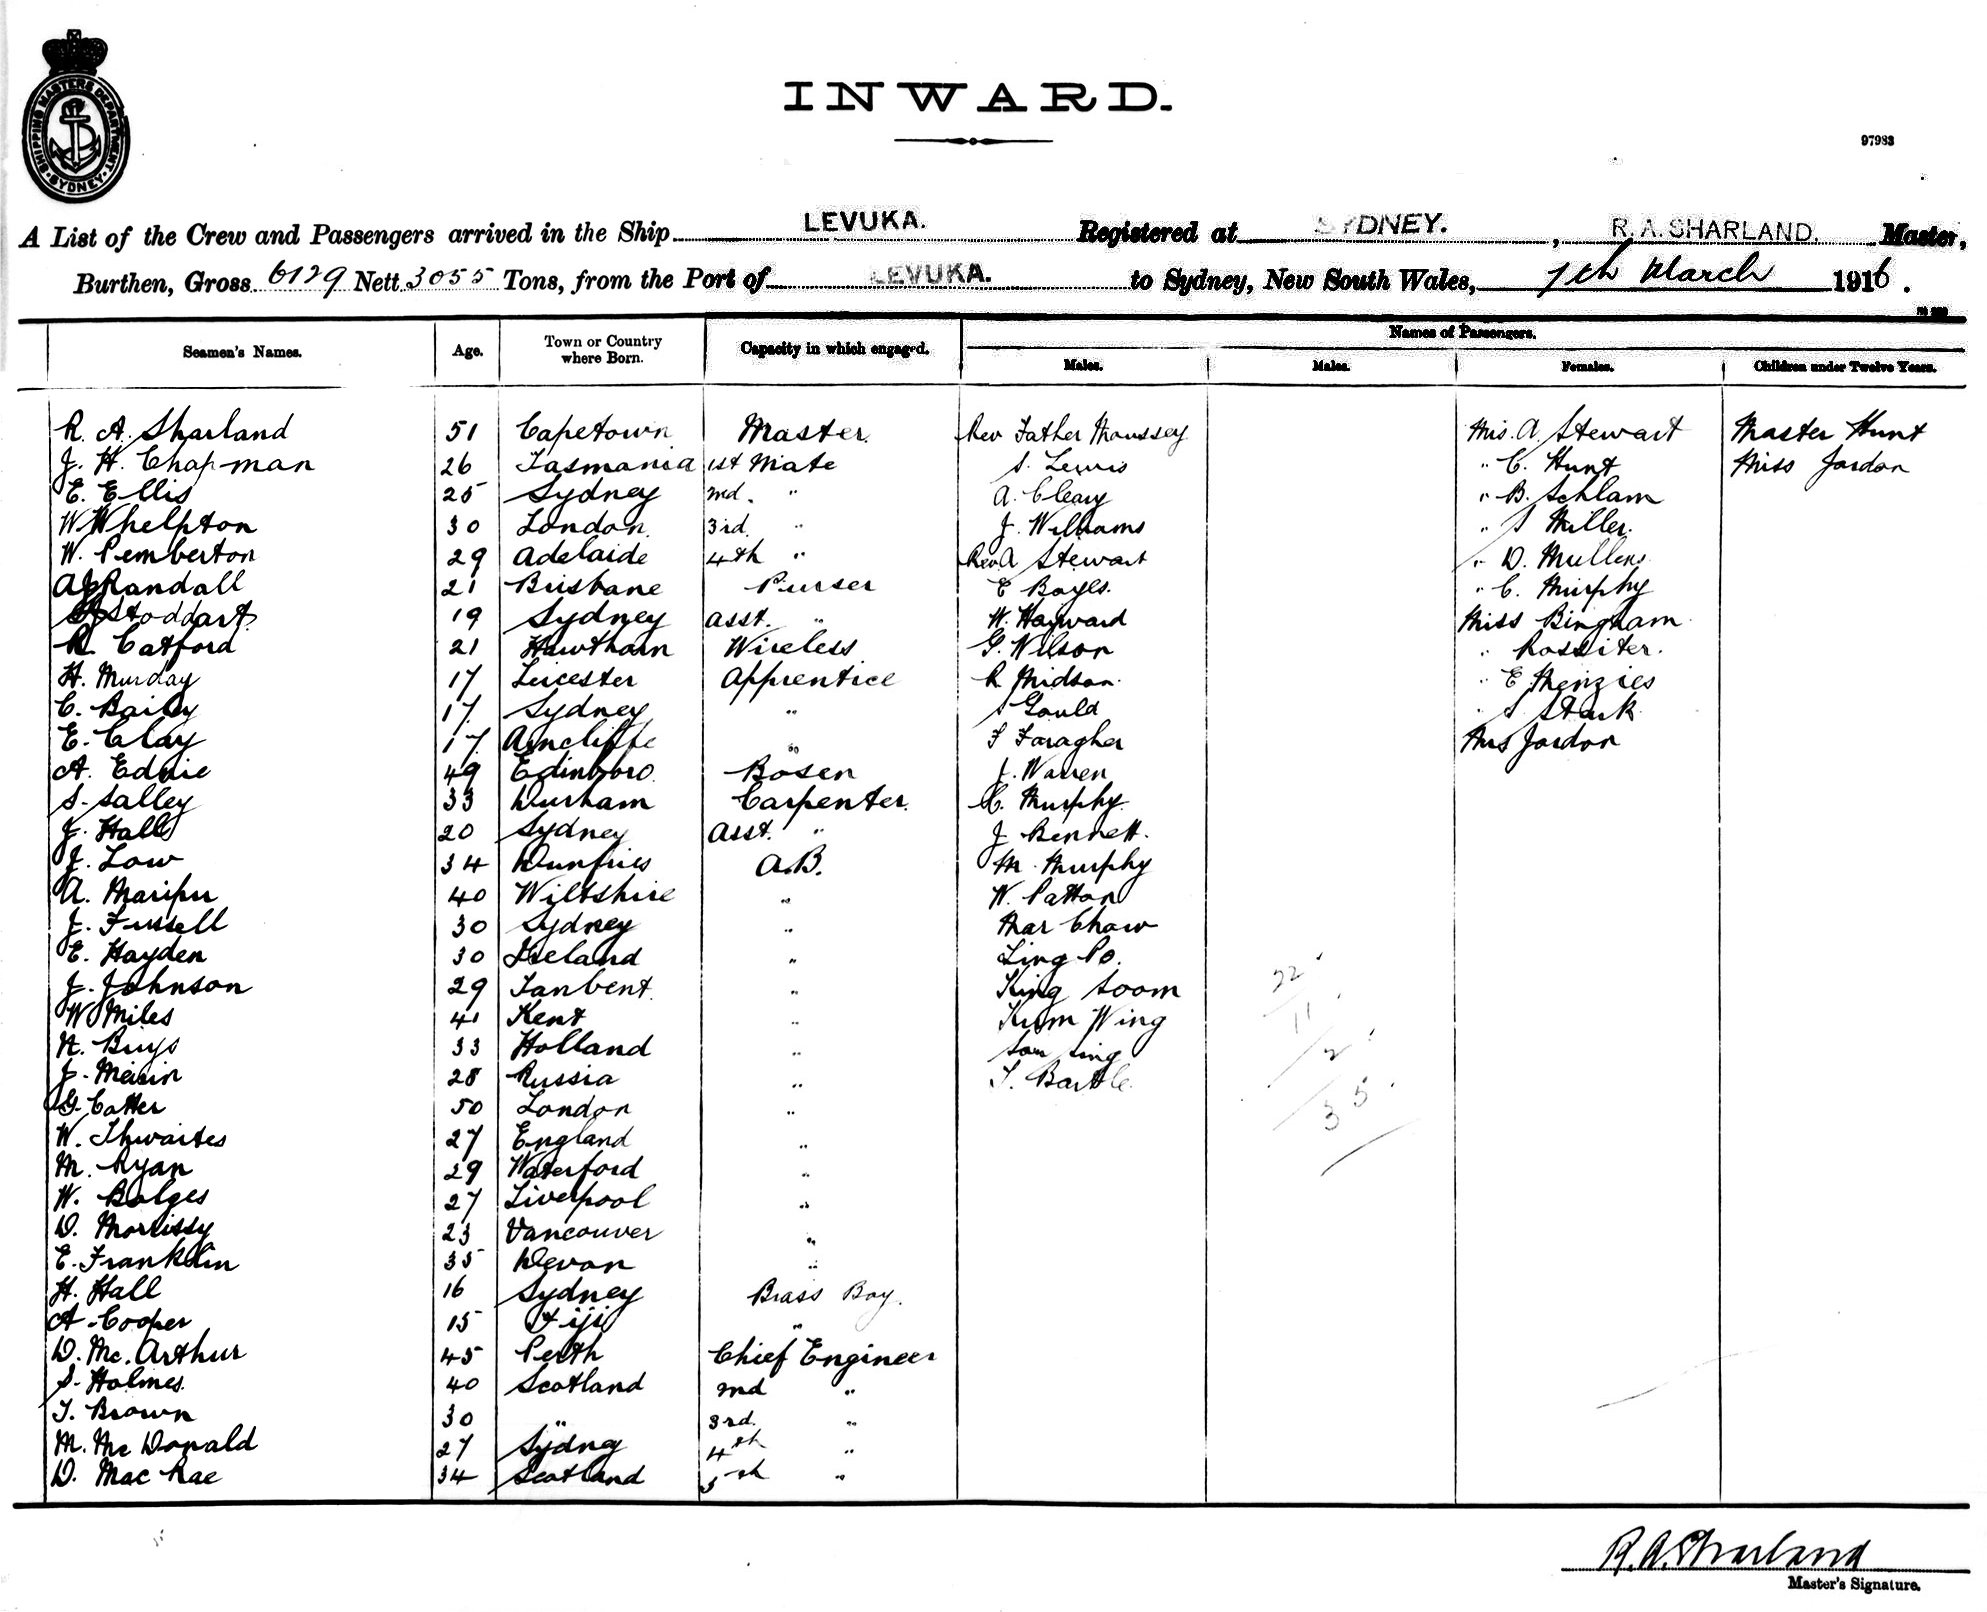 SHIPPING MASTERS DEPARTMENT. SYDNEY.
INWARD.
97983
A List of the Crew and Passengers arrived in the Ship LEVUKA. Registered at SYDNEY. , R. A. SHARLAND. Master,
Burthen, Gross 6129 Nett 3055 Tons, from the Port of LEVUKA. to Sydney, New South Wales, 7th March 1916.
Names of Passengers.
Seamen's Names. Age. Town or Country where Born. Capacity in which engaged. Males. Males. Females. Children under Twelve Years.
R. A. Sharland 51 Capetown Master. Rev Father Moussey Mrs. A. Stewart Master Hunt
J. H. Chapman 26 Tasmania 1st Mate S. Lewis " C. Hunt Miss Jordon
E. Ellis 25 Sydney 2nd. " A. Cleary " B. Schlam
W Whelpton 30 London. 3rd. " J. Williams " S Miller.
W. Pemberton 29 Adelaide 4th " Rev A Stewart " D. Mullens
A J Randall 21 Brisbane Purser E Boyes. " C. Murphy
Stoddart 19 Sydney asst. " W. Hayward Miss Bingham
R. Catford 21 Hawthorn Wireless G. Wilson " Rossiter.
H. Murday 17 Leicester Apprentice R Midson. " E Menzies
C. Baily 17. Sydney " S Gould " S Stark
E. Clay 17. Arncliffe " F Faragher Mrs Jordon
A. Ednie 49 Edinboro. Bosen J. Warren
S. Salley 33 Durham Carpenter. C. Murphy.
J. Hall 20 Sydney asst. " J Bennett.
J. Low 34 Dumfries A.B. M. Murphy
A. 40 Wiltshire " W. Patton
J. Fussell 30 Sydney " Mar Chow
E. Hayden 30 Ireland " Ling Po.
J. Johnson 29 " King Soom
W Miles 41 Kent " Kum Wing
N. Buys 33 Holland " Sou Sing
J. 28 Russia " T. Bartle
G. Cotter 50 London "
W. Thwaites 27 England "
M. Ryan 29 Waterford "
W. Bolges 27 Liverpool "
D. Morrissy 23 Vancouver "
E. Franklin 35 Devon "
H. Hall 16 Sydney Brass Boy.
A. Cooper 15 Fiji "
D. Mc. Arthur 45 Perth Chief Engineer
S. Holmes. 40 Scotland 2nd "
T. Brown 30 " 3rd. "
M. Mc Donald 27 Sydney 4th "
D. Mac Rae 34 Scotland 5th "
22
11
2
35
R. A. Sharland
Master's Signature.